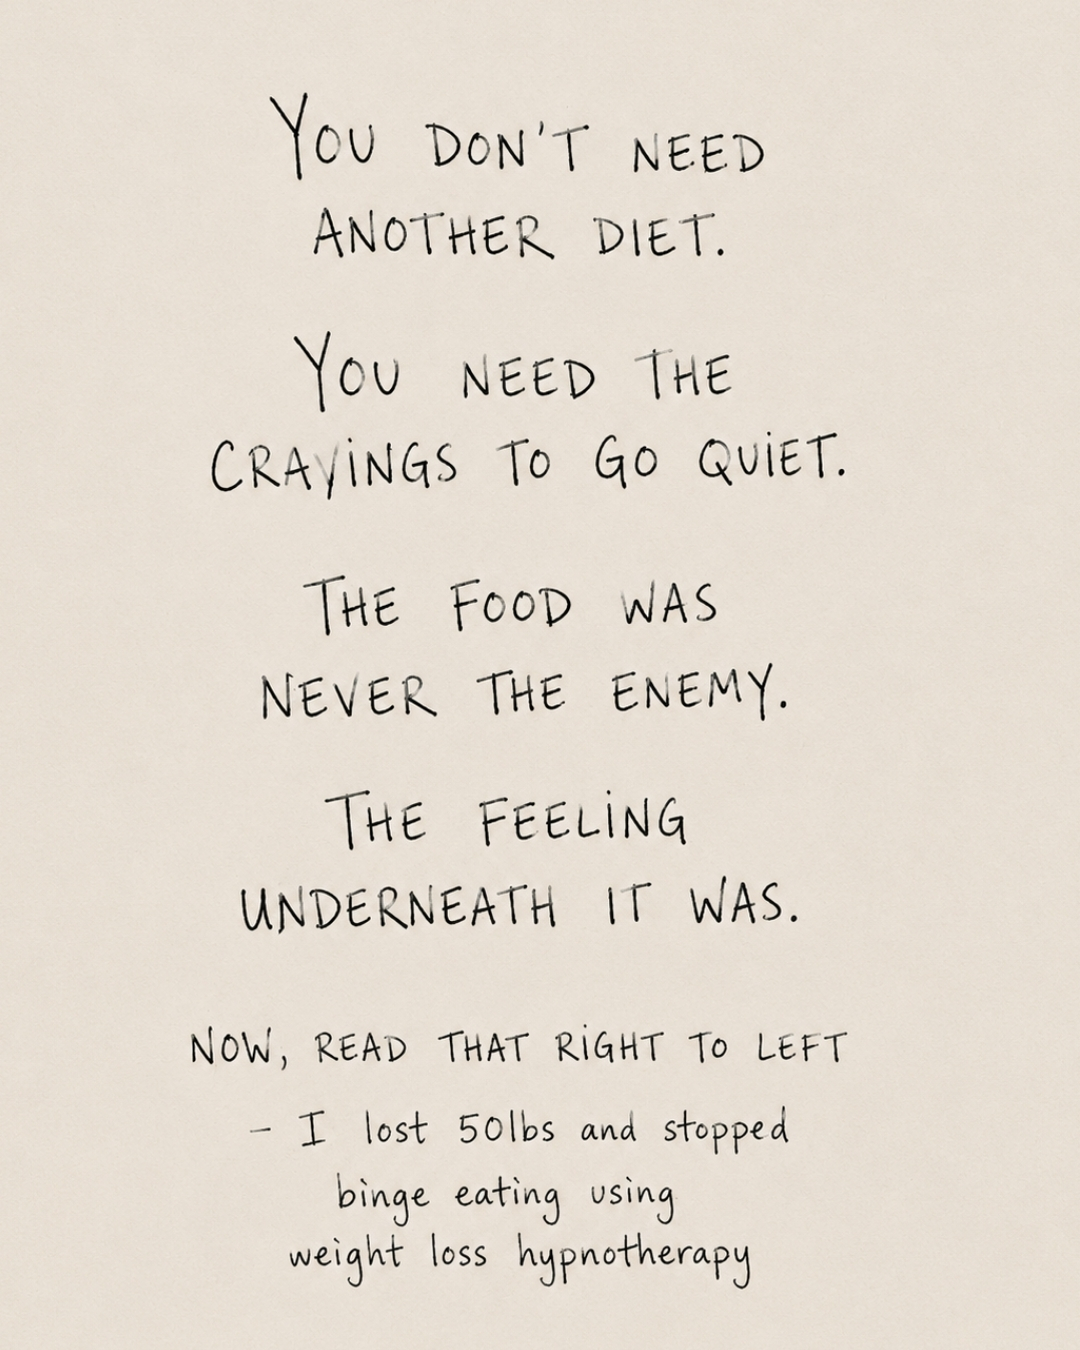 YOU DON'T NEED
ANOTHER DIET.
YOU NEED THE
CRAVINGS TO GO QUIET.
THE FOOD WAS
NEVER THE ENEMY.
THE FEELING
UNDERNEATH IT WAS.
NOW, READ THAT RIGHT TO LEFT
- I lost 50lbs and stopped
binge eating using
weight loss hypnotherapy